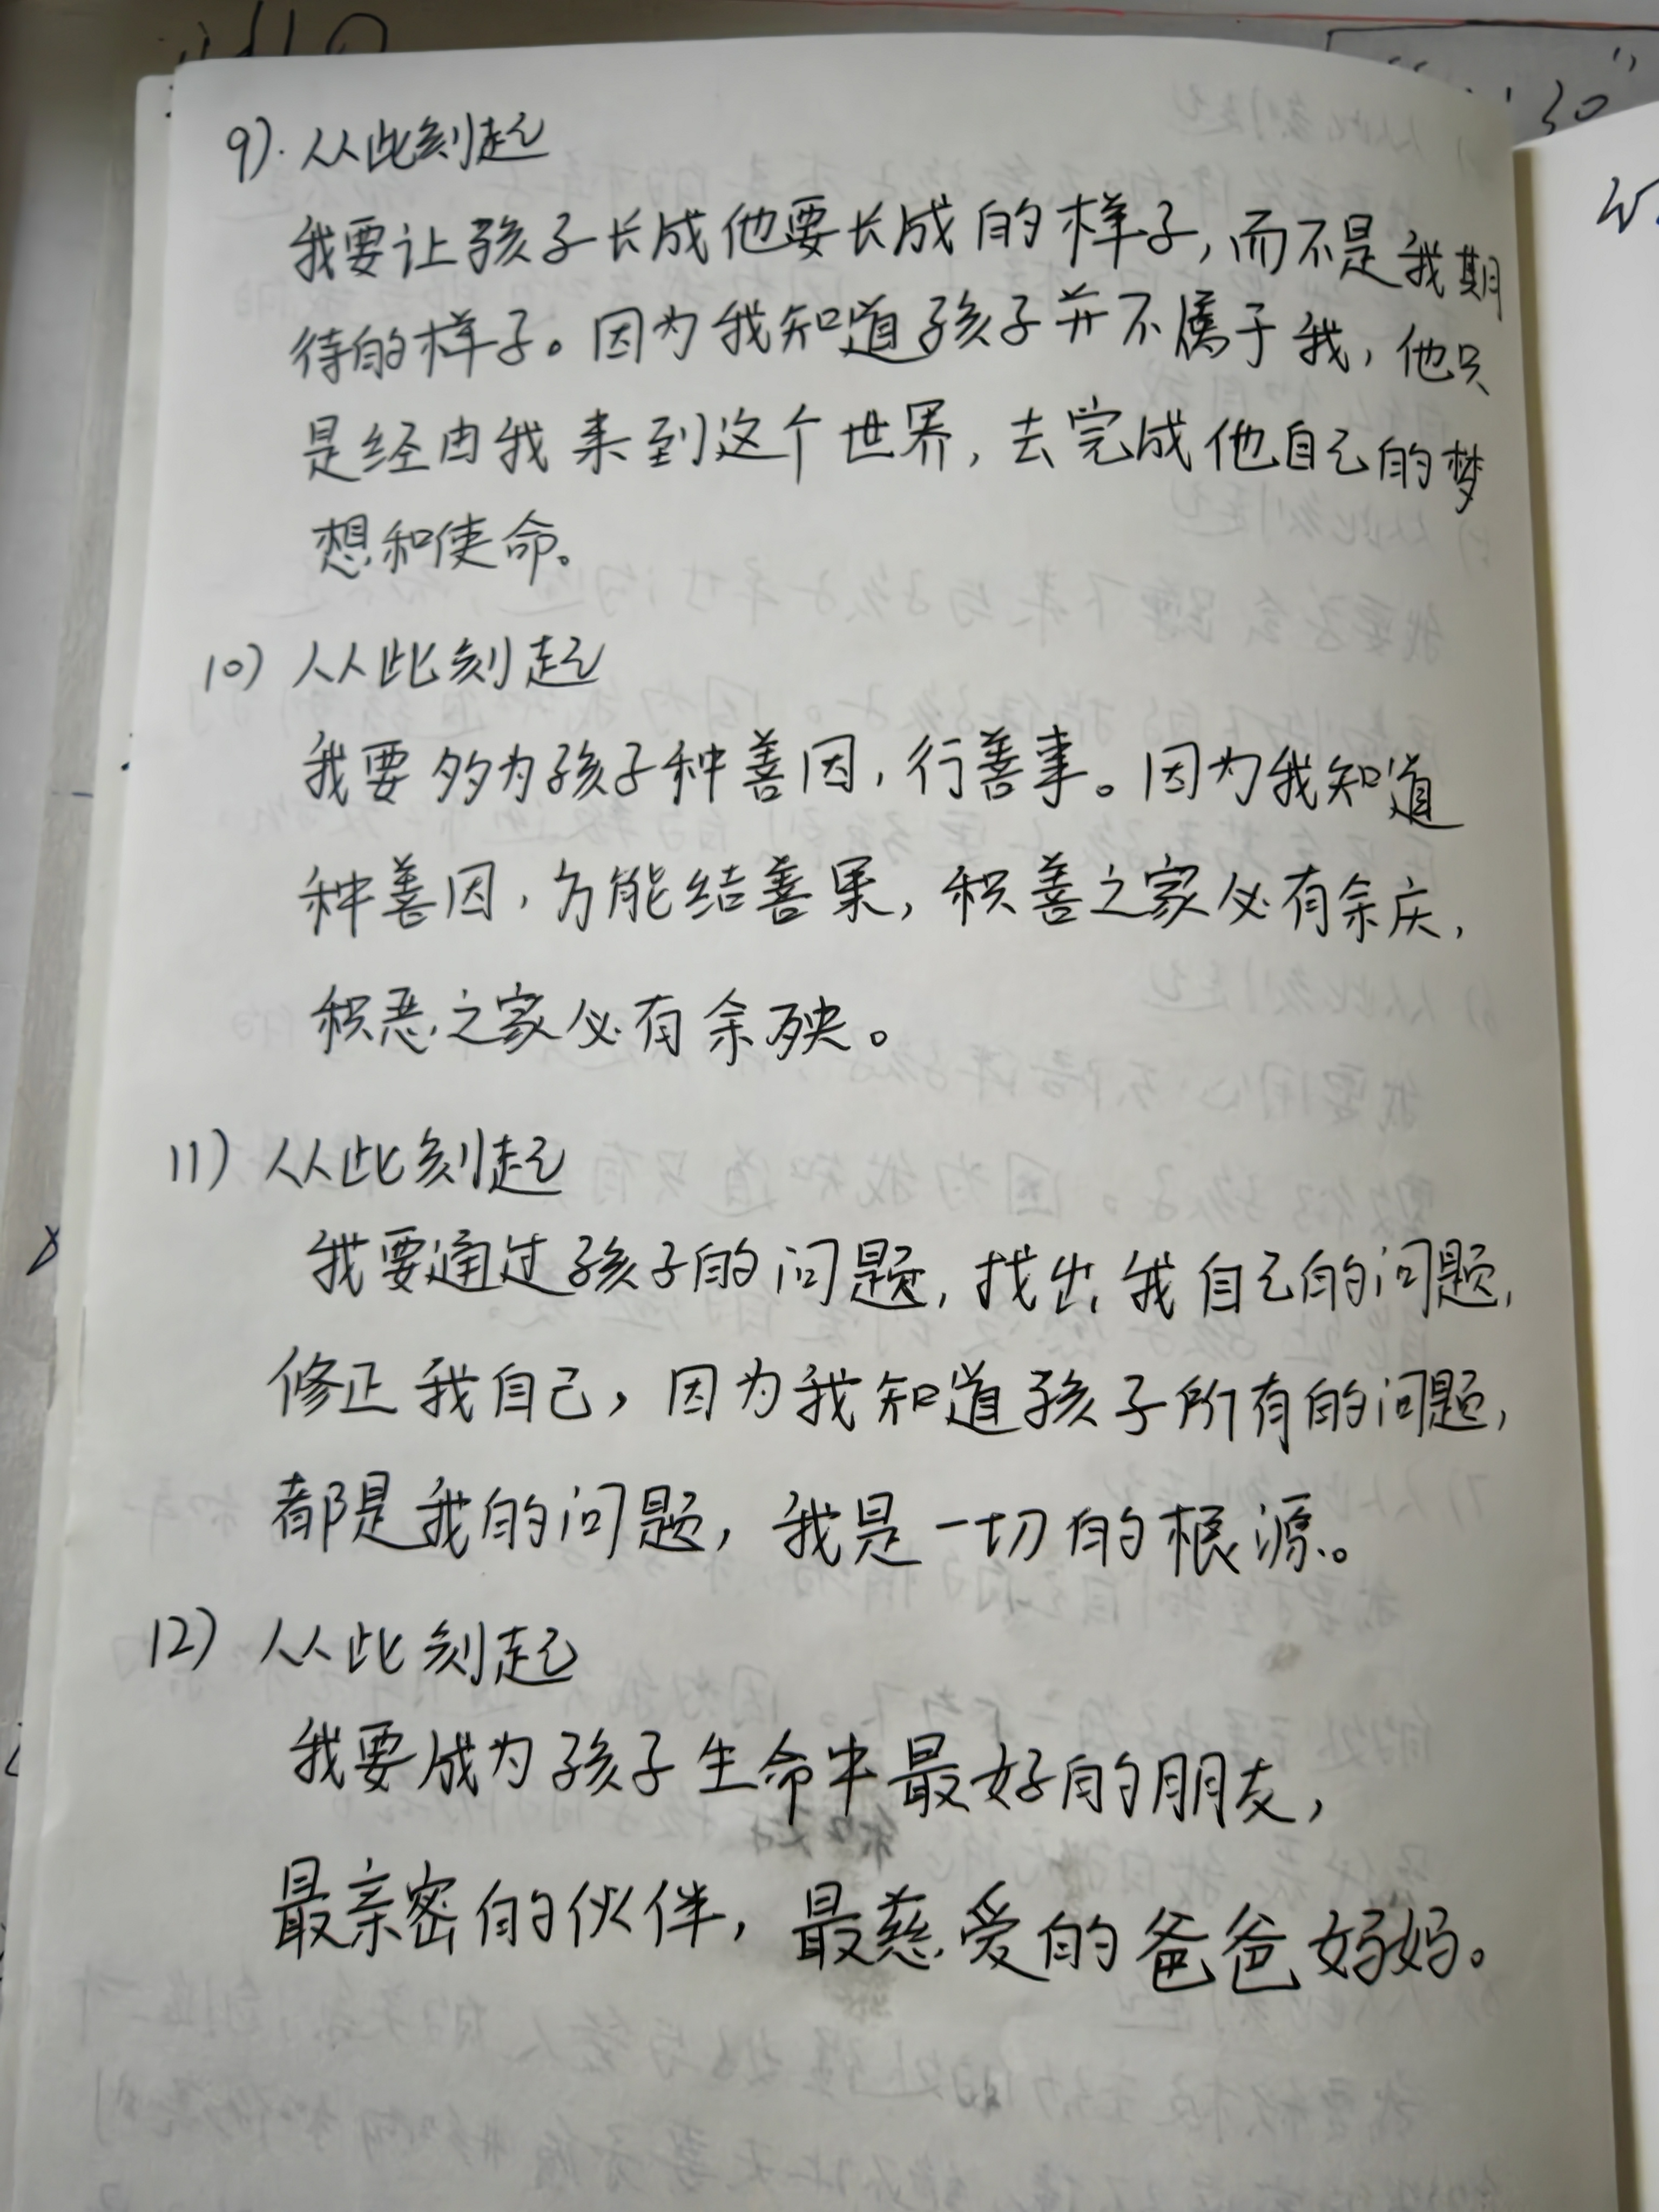 9). 从此刻起
我要让孩子长成他要长成的样子，而不是我期
待的样子。因为我知道孩子并不属于我，他只
是经由我来到这个世界，去完成他自己的梦
想和使命。
10) 从此刻起
我要多为孩子种善因，行善事。因为我知道
种善因，方能结善果，积善之家必有余庆，
积恶之家必有余殃。
11) 从此刻起
我要通过孩子的问题，找出我自己的问题，
修正我自己，因为我知道孩子所有的问题，
都是我的问题，我是一切的根源。
12) 从此刻起
我要成为孩子生命中最好的朋友，
最亲密的伙伴，最慈爱的爸爸妈妈。